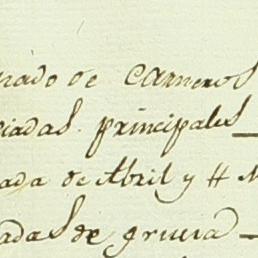 nado de Carneros
iadas principales
ada de Abril y H M
adas de grueia